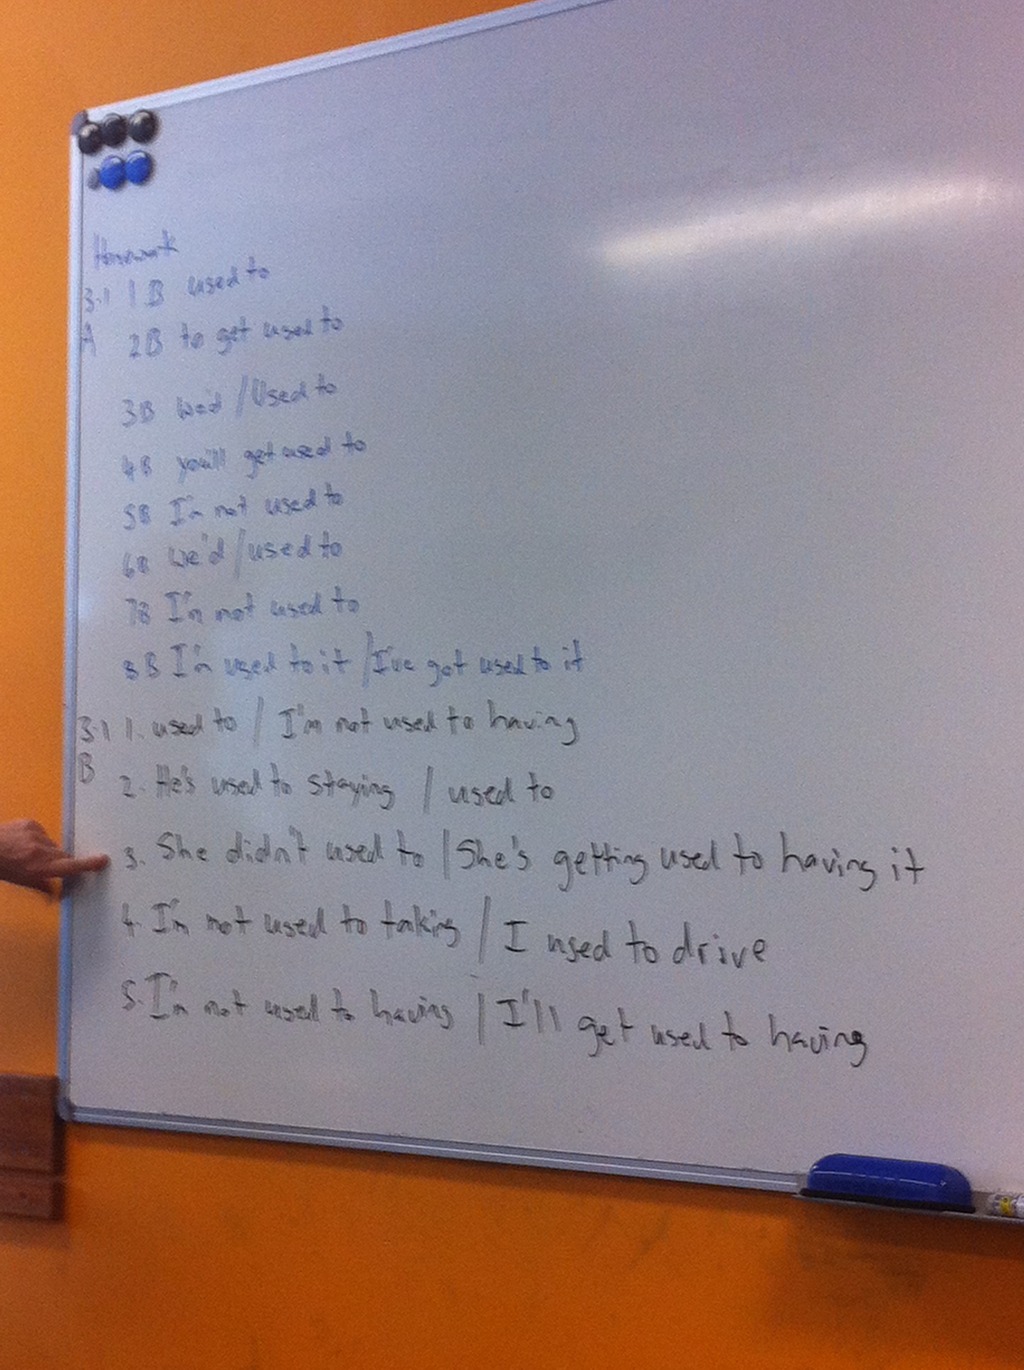 Homework
3.1 1B used to
A 2B to get used to
3B We'd / Used to
4B you'll get used to
5B I'm not used to
6B We'd / used to
7B I'm not used to
8B I'm used to it / I've got used to it
3.1 1. used to / I'm not used to having
B 2. He's used to staying / used to
3. She didn't used to / She's getting used to having it
4. I'm not used to taking / I used to drive
5. I'm not used to having / I'll get used to having